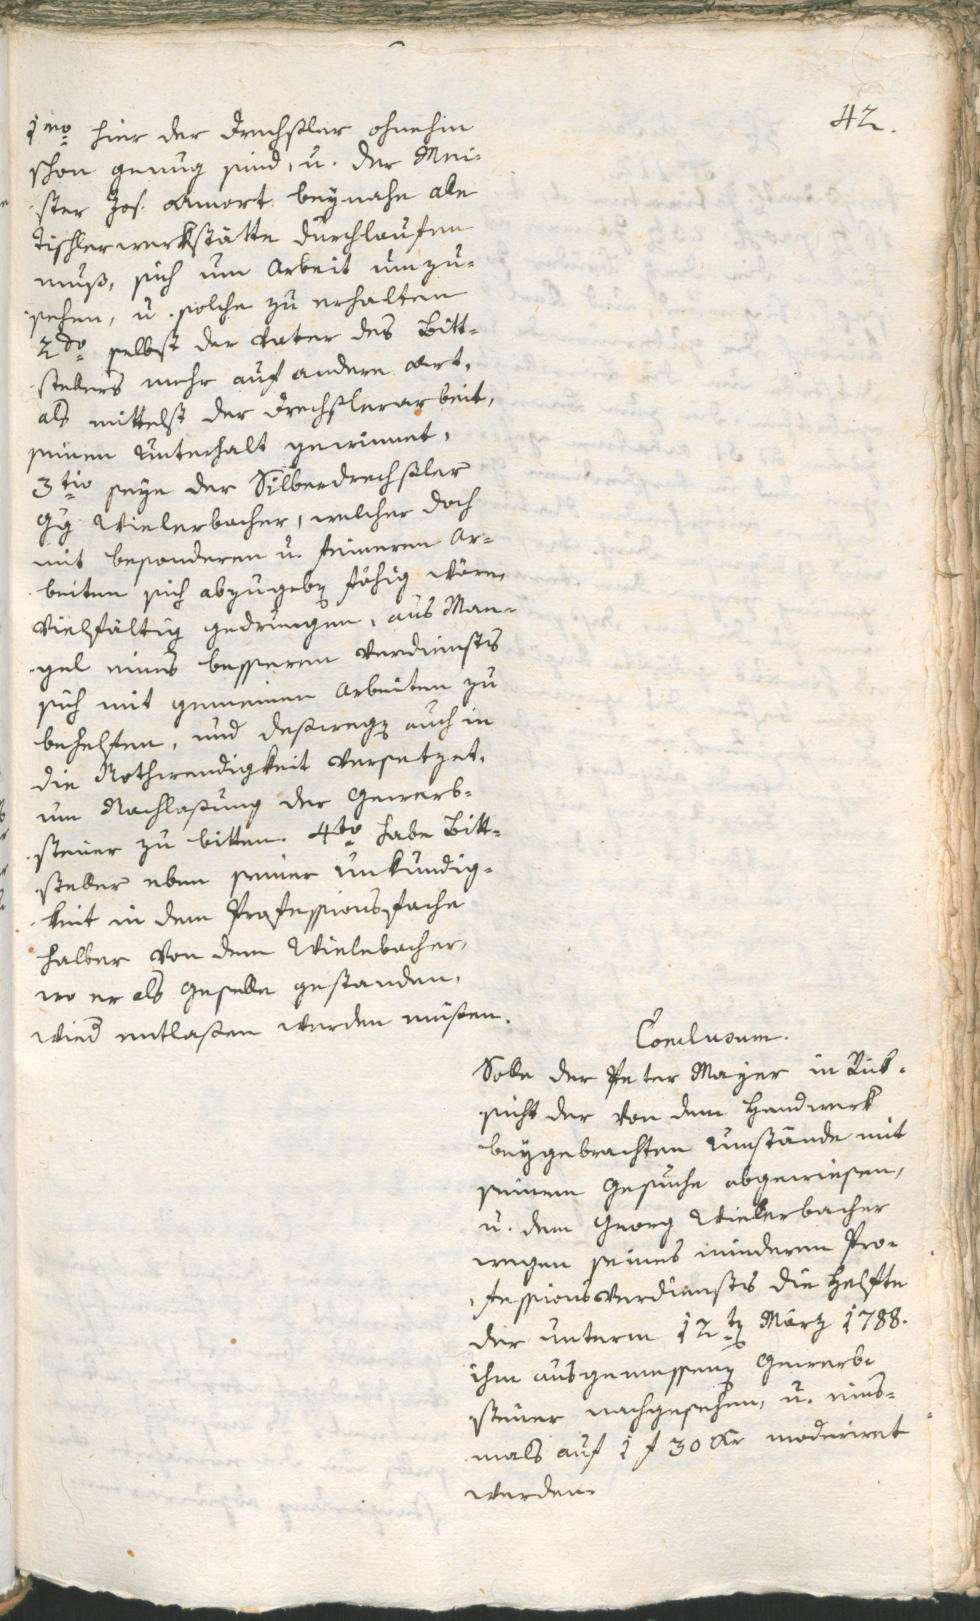 42.
1mo hier der Drechsler ohnehin
schon genug sind, u. der Mei=
ster Jos. Amort beynahe alle
Tischlerwerkstätte durchlaufen
muß, sich um Arbeit umzu=
sehen, u. solche zu erhalten
2do selbst der Vater des Bitt=
stellers mehr auf andere Art,
als mittelst der Drechslerarbeit,
seinen Unterhalt gewinnet,
3tio seye der Silberdrechsler
Gg Wielerbacher, welcher doch
mit besonderen u. feineren Ar=
beiten sich abzugeben fähig wäre,
vielfältig gedrungen, aus Man=
gel eines besseren Verdienstes
sich mit gemeinen Arbeiten zu
behelfen, und deßwegen auch in
die Nothwendigkeit versetzet,
um Nachlaßung der Gewerb=
steuer zu bitten. 4to habe Bitt=
steller eben seiner Unkündig=
keit in dem Professionsfache
halber von dem Wielebacher,
wo er als Geselle gestanden,
wied entlaßen werden müßen.
Conclusum.
Solle der Peter Mayer in Rük=
sicht der von dem Handwerk
beygebrachten Umstände mit
seinem Gesuche abgewiesen,
u. dem Georg Wielerbacher
wegen seines minderen Pro=
fessionsverdienstes die Helfte
der unterm 12ten März 1788.
ihm ausgemessenen Gewerb=
steuer nachgesehen, u. eins=
mals auf 1 f 30 kr moderiret
werden.